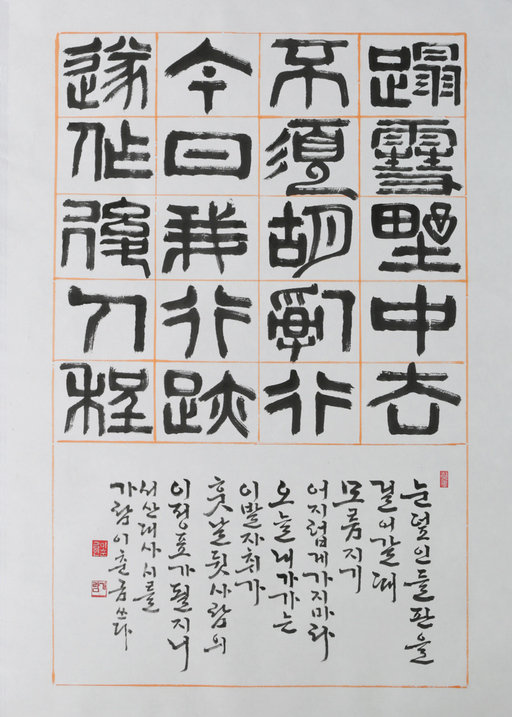 蹋雪野中去
不須胡亂行
今日我行跡
遂作後人程
눈덮인 들판을
걸어갈 때
모름지기
어지럽게 가지마라
오늘 내가 가는
이 발자취가
훗날 뒷사람의
이정표가 될지니
서산대사 시를
가람 이춘금 쓰다